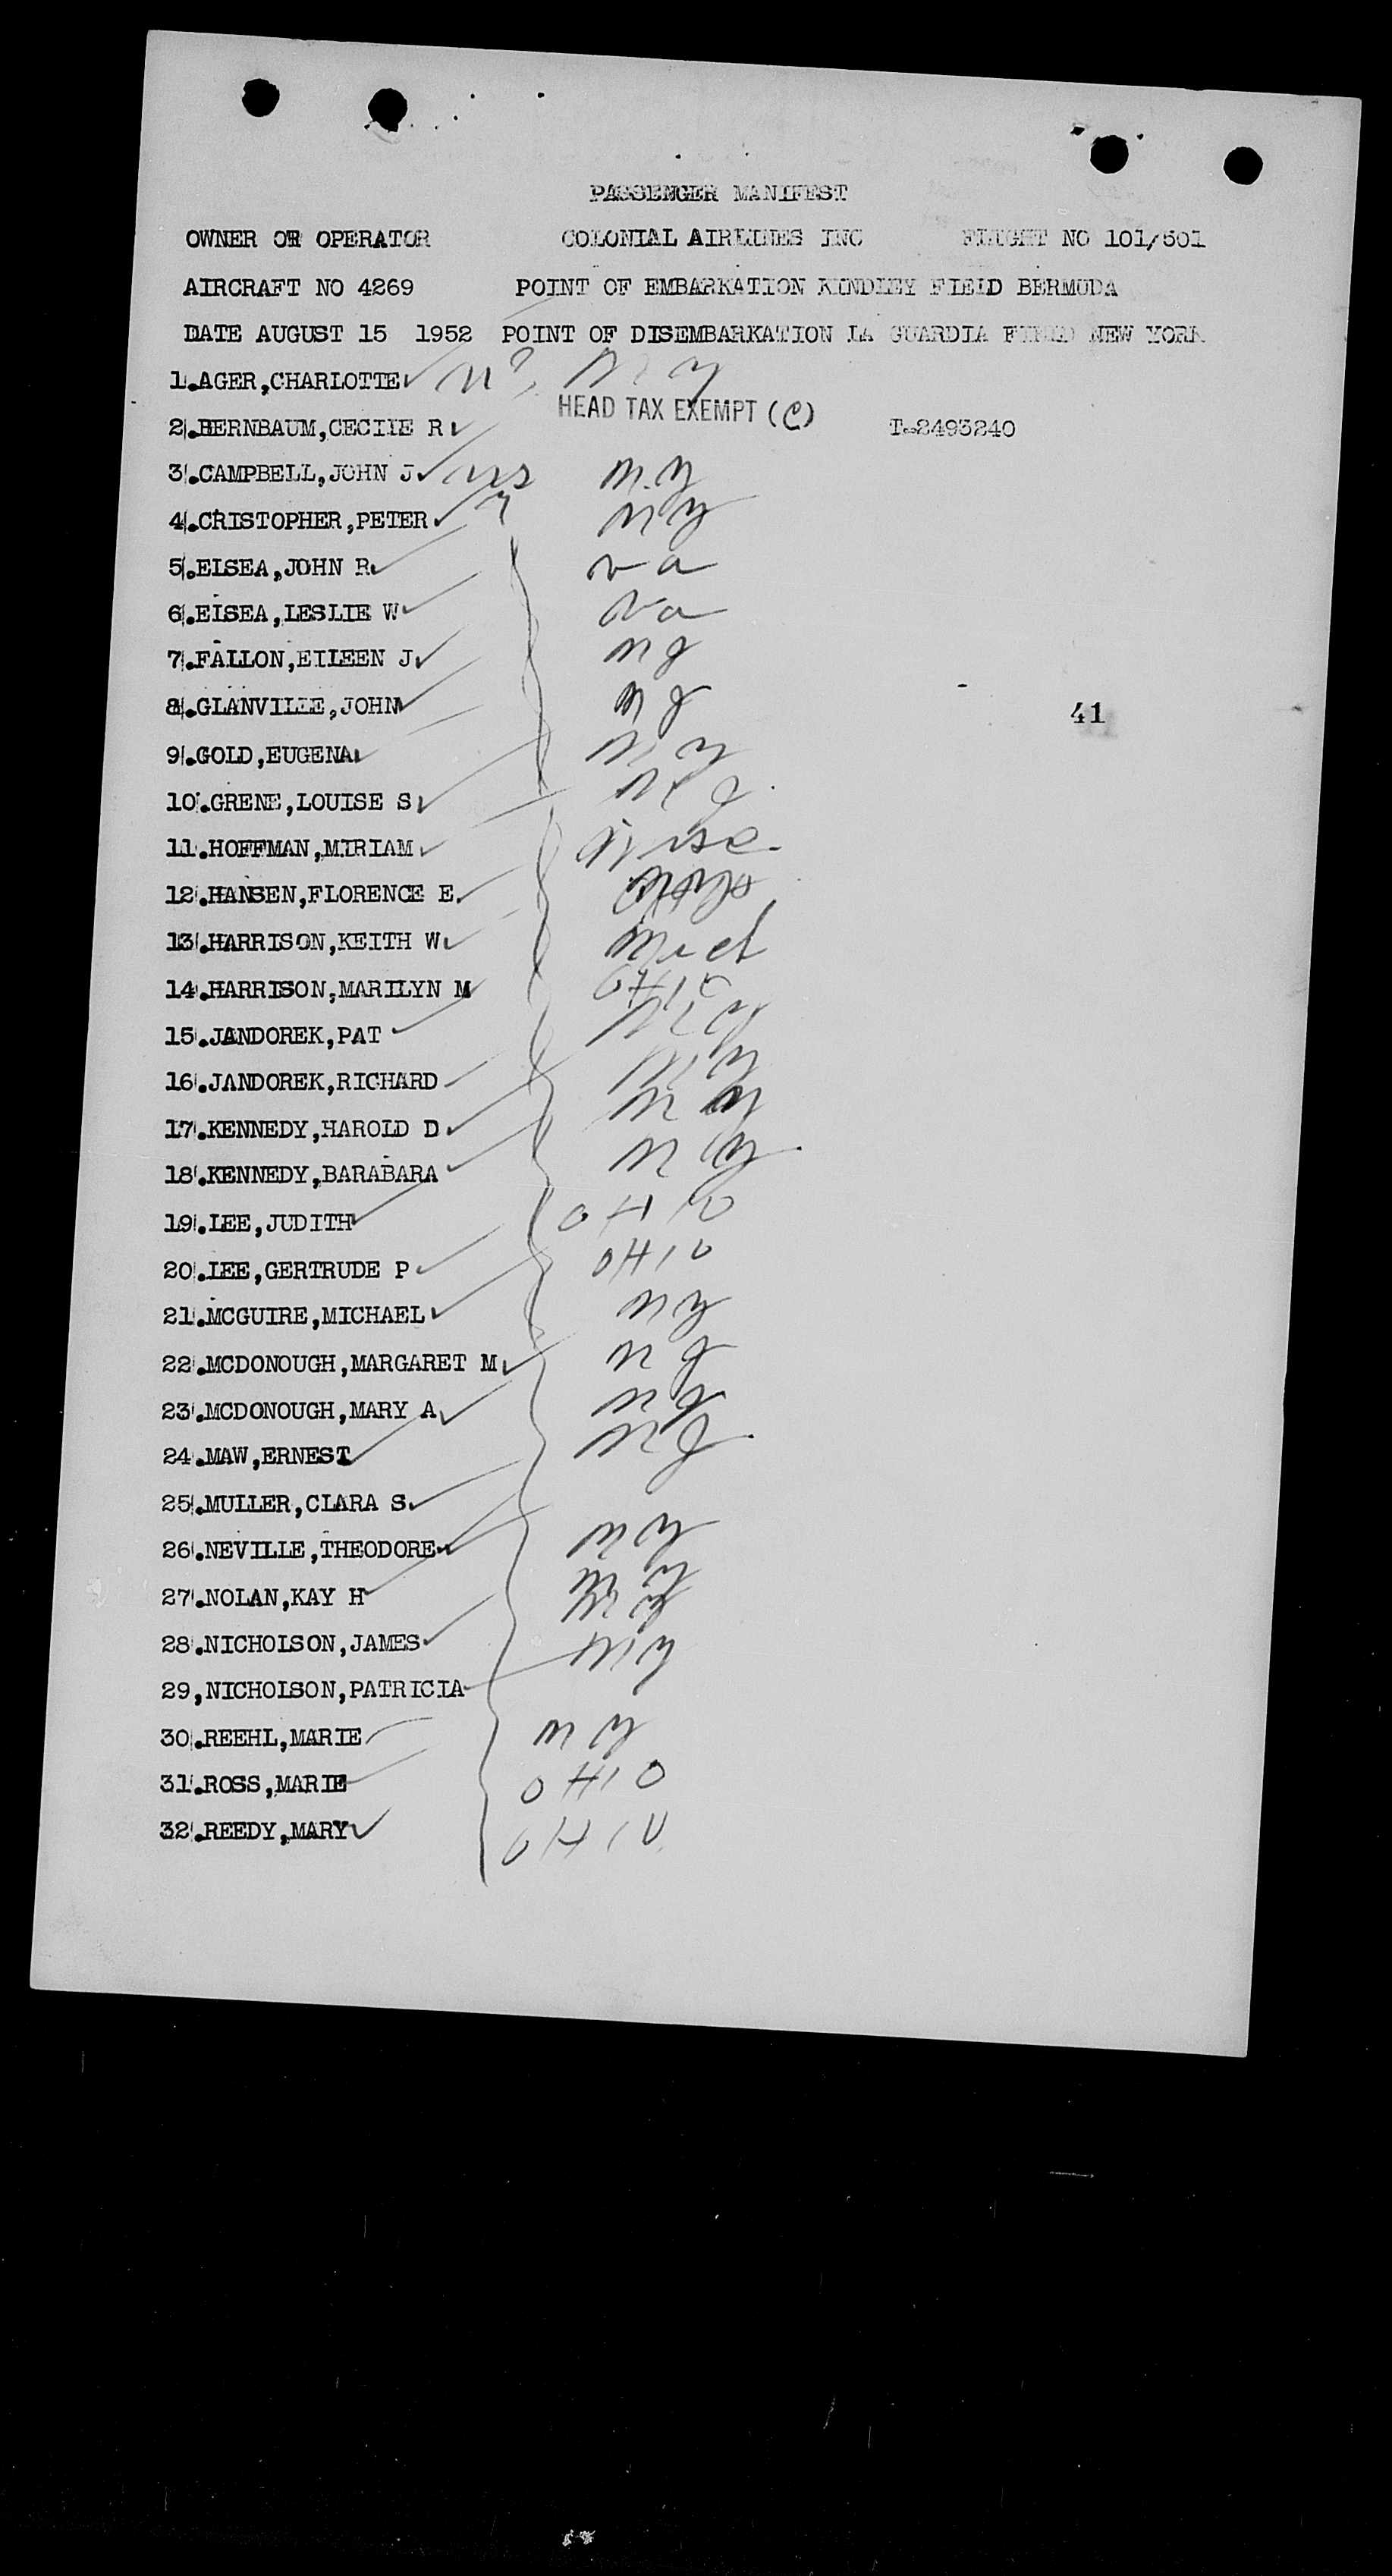 PASSENGER MANIFEST
OWNER OR OPERATOR COLONIAL AIRLINES INC FLIGHT NO 101/501
AIRCRAFT NO 4269 POINT OF EMBARKATION KINDLEY FIELD BERMUDA
DATE AUGUST 15 1952 POINT OF DISEMBARKATION LA GUARDIA FIELD NEW YORK
1.AGER,CHARLOTTE N Y
HEAD TAX EXEMPT (C)
2.BERNBAUM,CECILE R T-2493240
3.CAMPBELL,JOHN J US N.Y
4.CRISTOPHER,PETER N Y
5.ELSEA,JOHN R Va
6.ELSEA,LESLIE W Va
7.FALLON,EILEEN J N J
8.GLANVILLE,JOHN N J
41
9.GOLD,EUGENA N Y
10.GRENE,LOUISE S N J
11.HOFFMAN,MIRIAM
12.HANSEN,FLORENCE E.
13.HARRISON,KEITH W Mich
14.HARRISON,MARILYN M OHIO
15.JANDOREK,PAT
16.JANDOREK,RICHARD N Y
17.KENNEDY,HAROLD D N Y
18.KENNEDY,BARABARA N Y
19.LEE,JUDITH OHIO
20.LEE,GERTRUDE P OHIO
21.MCGUIRE,MICHAEL N Y
22.MCDONOUGH,MARGARET M N J
23.MCDONOUGH,MARY A N J
24.MAW,ERNEST N J
25.MULLER,CLARA S
26.NEVILLE,THEODORE N Y
27.NOLAN,KAY H N Y
28.NICHOLSON,JAMES N Y
29,NICHOLSON,PATRICIA N Y
30.REEHL,MARIE N Y
31.ROSS,MARIE OHIO
32.REEDY,MARY OHIO